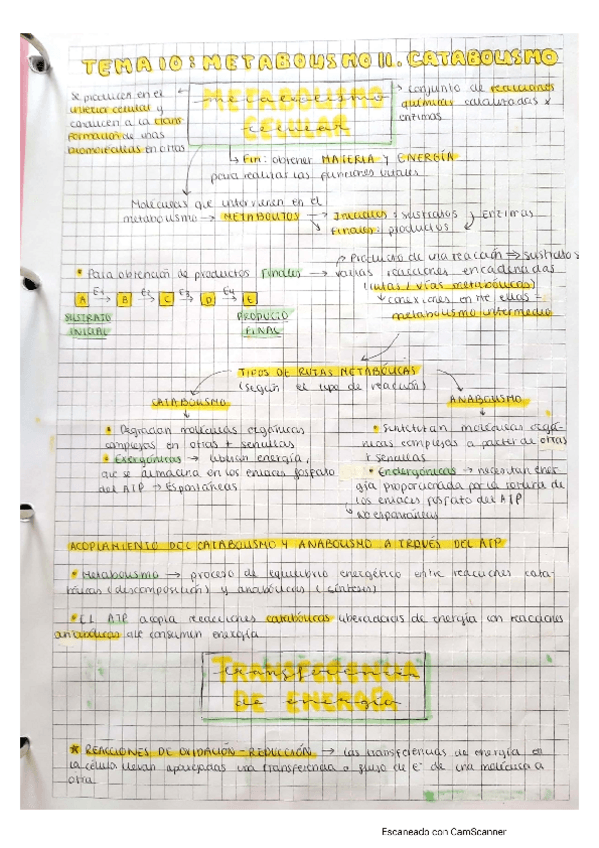 TEMA 10: METABOLISMO II. CATABOLISMO
Se producen en el
interior celular y
conducen a la trans
formación de unas
biomoléculas en otras
metabolismo
celular
conjunto de reacciones
químicas catalizadas x
enzimas
↳ Fin: obtener MATERIA Y ENERGÍA
para realizar las funciones vitales
Moléculas que intervienen en el
metabolismo → METABOLITOS → Iniciales: sustratos
Finales: productos
Enzimas
Producto de una reacción ⇒ sustratos
• Para obtención de productos finales → varias reacciones encadenadas
(rutas / vías metabólicas)
↓ conexiones entre ellas =
metabolismo intermedio
A E1 → B E2 → C E3 → D E4 → E
SUSTRATO
INICIAL
PRODUCTO
FINAL
TIPOS DE RUTAS METABÓLICAS
(según el tipo de reacción)
CATABOLISMO
• Degradan moléculas orgánicas
complejas en otras + sencillas
• Exergónicas → liberan energía,
que se almacena en los enlaces fosfato
del ATP → Espontáneas
ANABOLISMO
• Sintetizan moléculas orgá-
nicas complejas a partir de otras
+ sencillas
• Endergónicas → necesitan ener
gía proporcionada por la rotura de
los enlaces fosfato del ATP
↳ No espontáneas
ACOPLAMIENTO DEL CATABOLISMO Y ANABOLISMO A TRAVÉS DEL ATP
• Metabolismo → proceso de equilibrio energético entre reacciones cata-
bólicas (descomposición) y anabólicas (síntesis)
• El ATP acopla reacciones catabólicas liberadoras de energía con reacciones
anabólicas que consumen energía
Transferencia
de energía
* REACCIONES DE OXIDACIÓN-REDUCCIÓN → las transferencias de energía en
la célula llevan aparejadas una transferencia o flujo de e⁻ de una molécula a
otra.
Escaneado con CamScanner